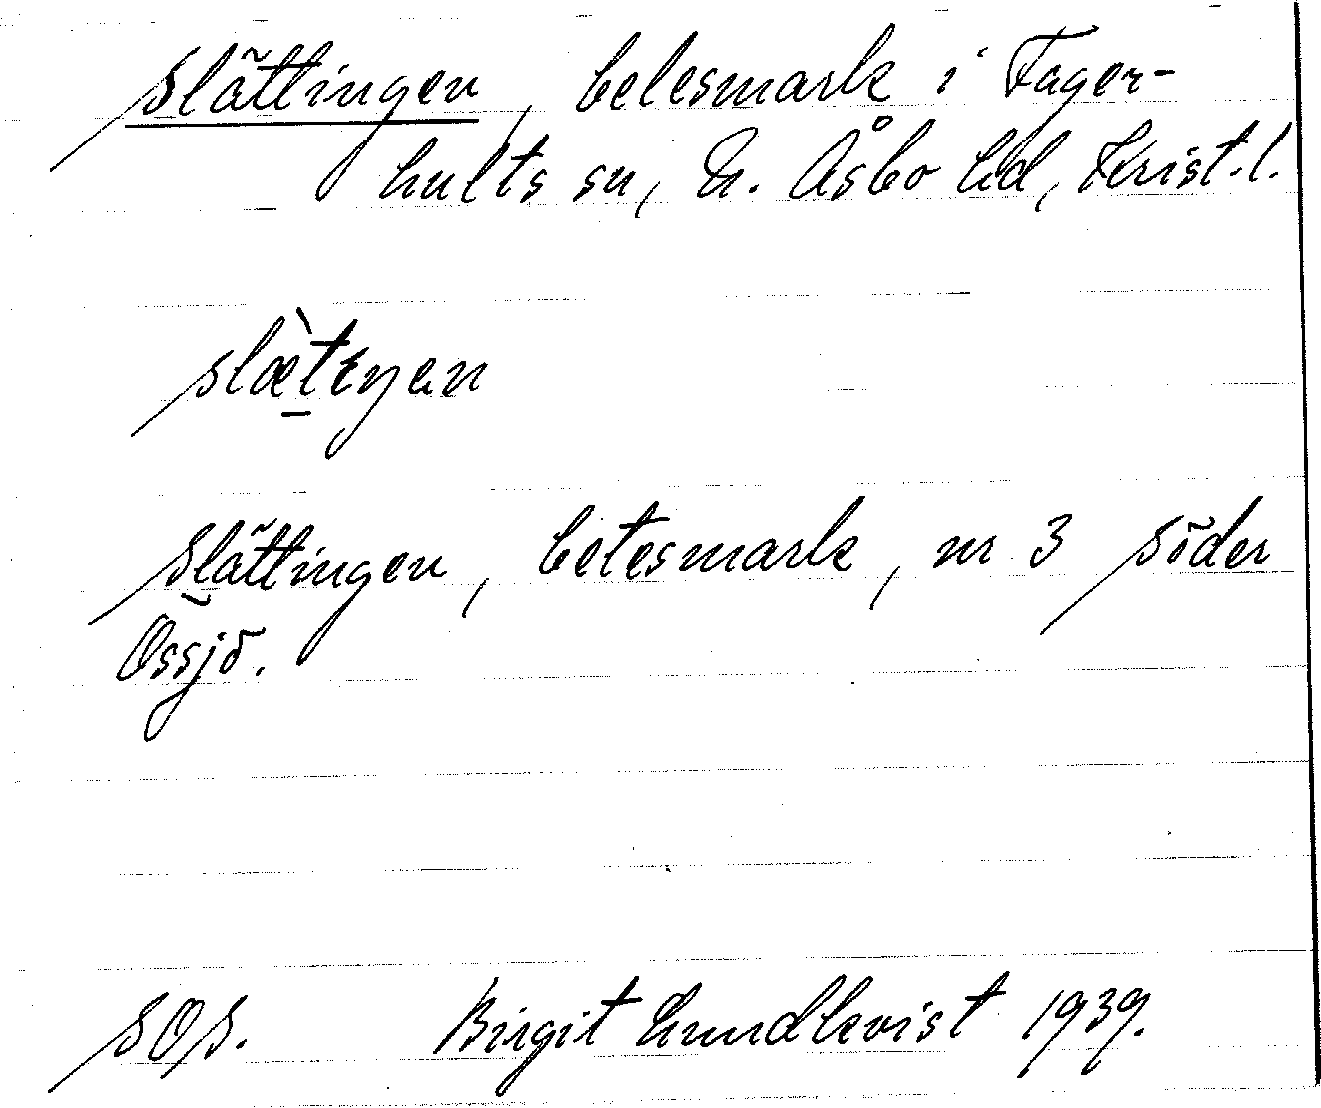 Slättingen, betesmark i Fager-
hults sn, N. Åsbo hd, Krist. l.
slæ̀tɪŋan
Slättingen, betesmark, nr 3 Söder
Össjö.
SOS. Birgit Lundkvist 1939.